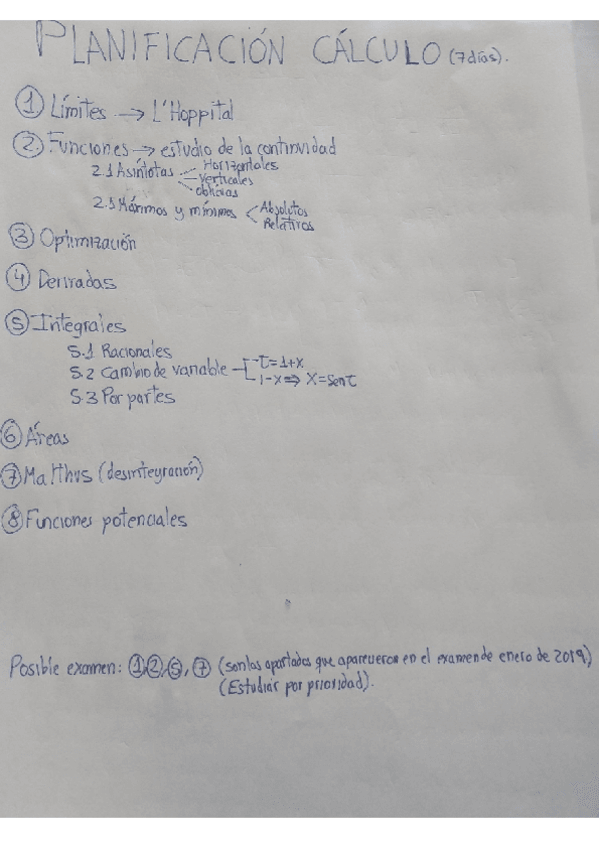 PLANIFICACIÓN CÁLCULO (7 días).
① Límites → L'Hoppital
②. Funciones → estudio de la continuidad
2.1 Asíntotas Horizontales
verticales
oblicuas
2.1 Máximos y mínimos < Absolutos
Relativos
③ Optimización
④ Derivadas
⑤ Integrales
5.1 Racionales
5.2 Cambio de variable t=1+x
1-x ⇒ x=sent
5.3 Por partes
⑥ Áreas
⑦ Malthus (desintegración)
⑧ Funciones potenciales
Posible examen: ①,②,⑤,⑦ (son los apartados que aparecieron en el examen de enero de 2019)
(Estudiar por prioridad).